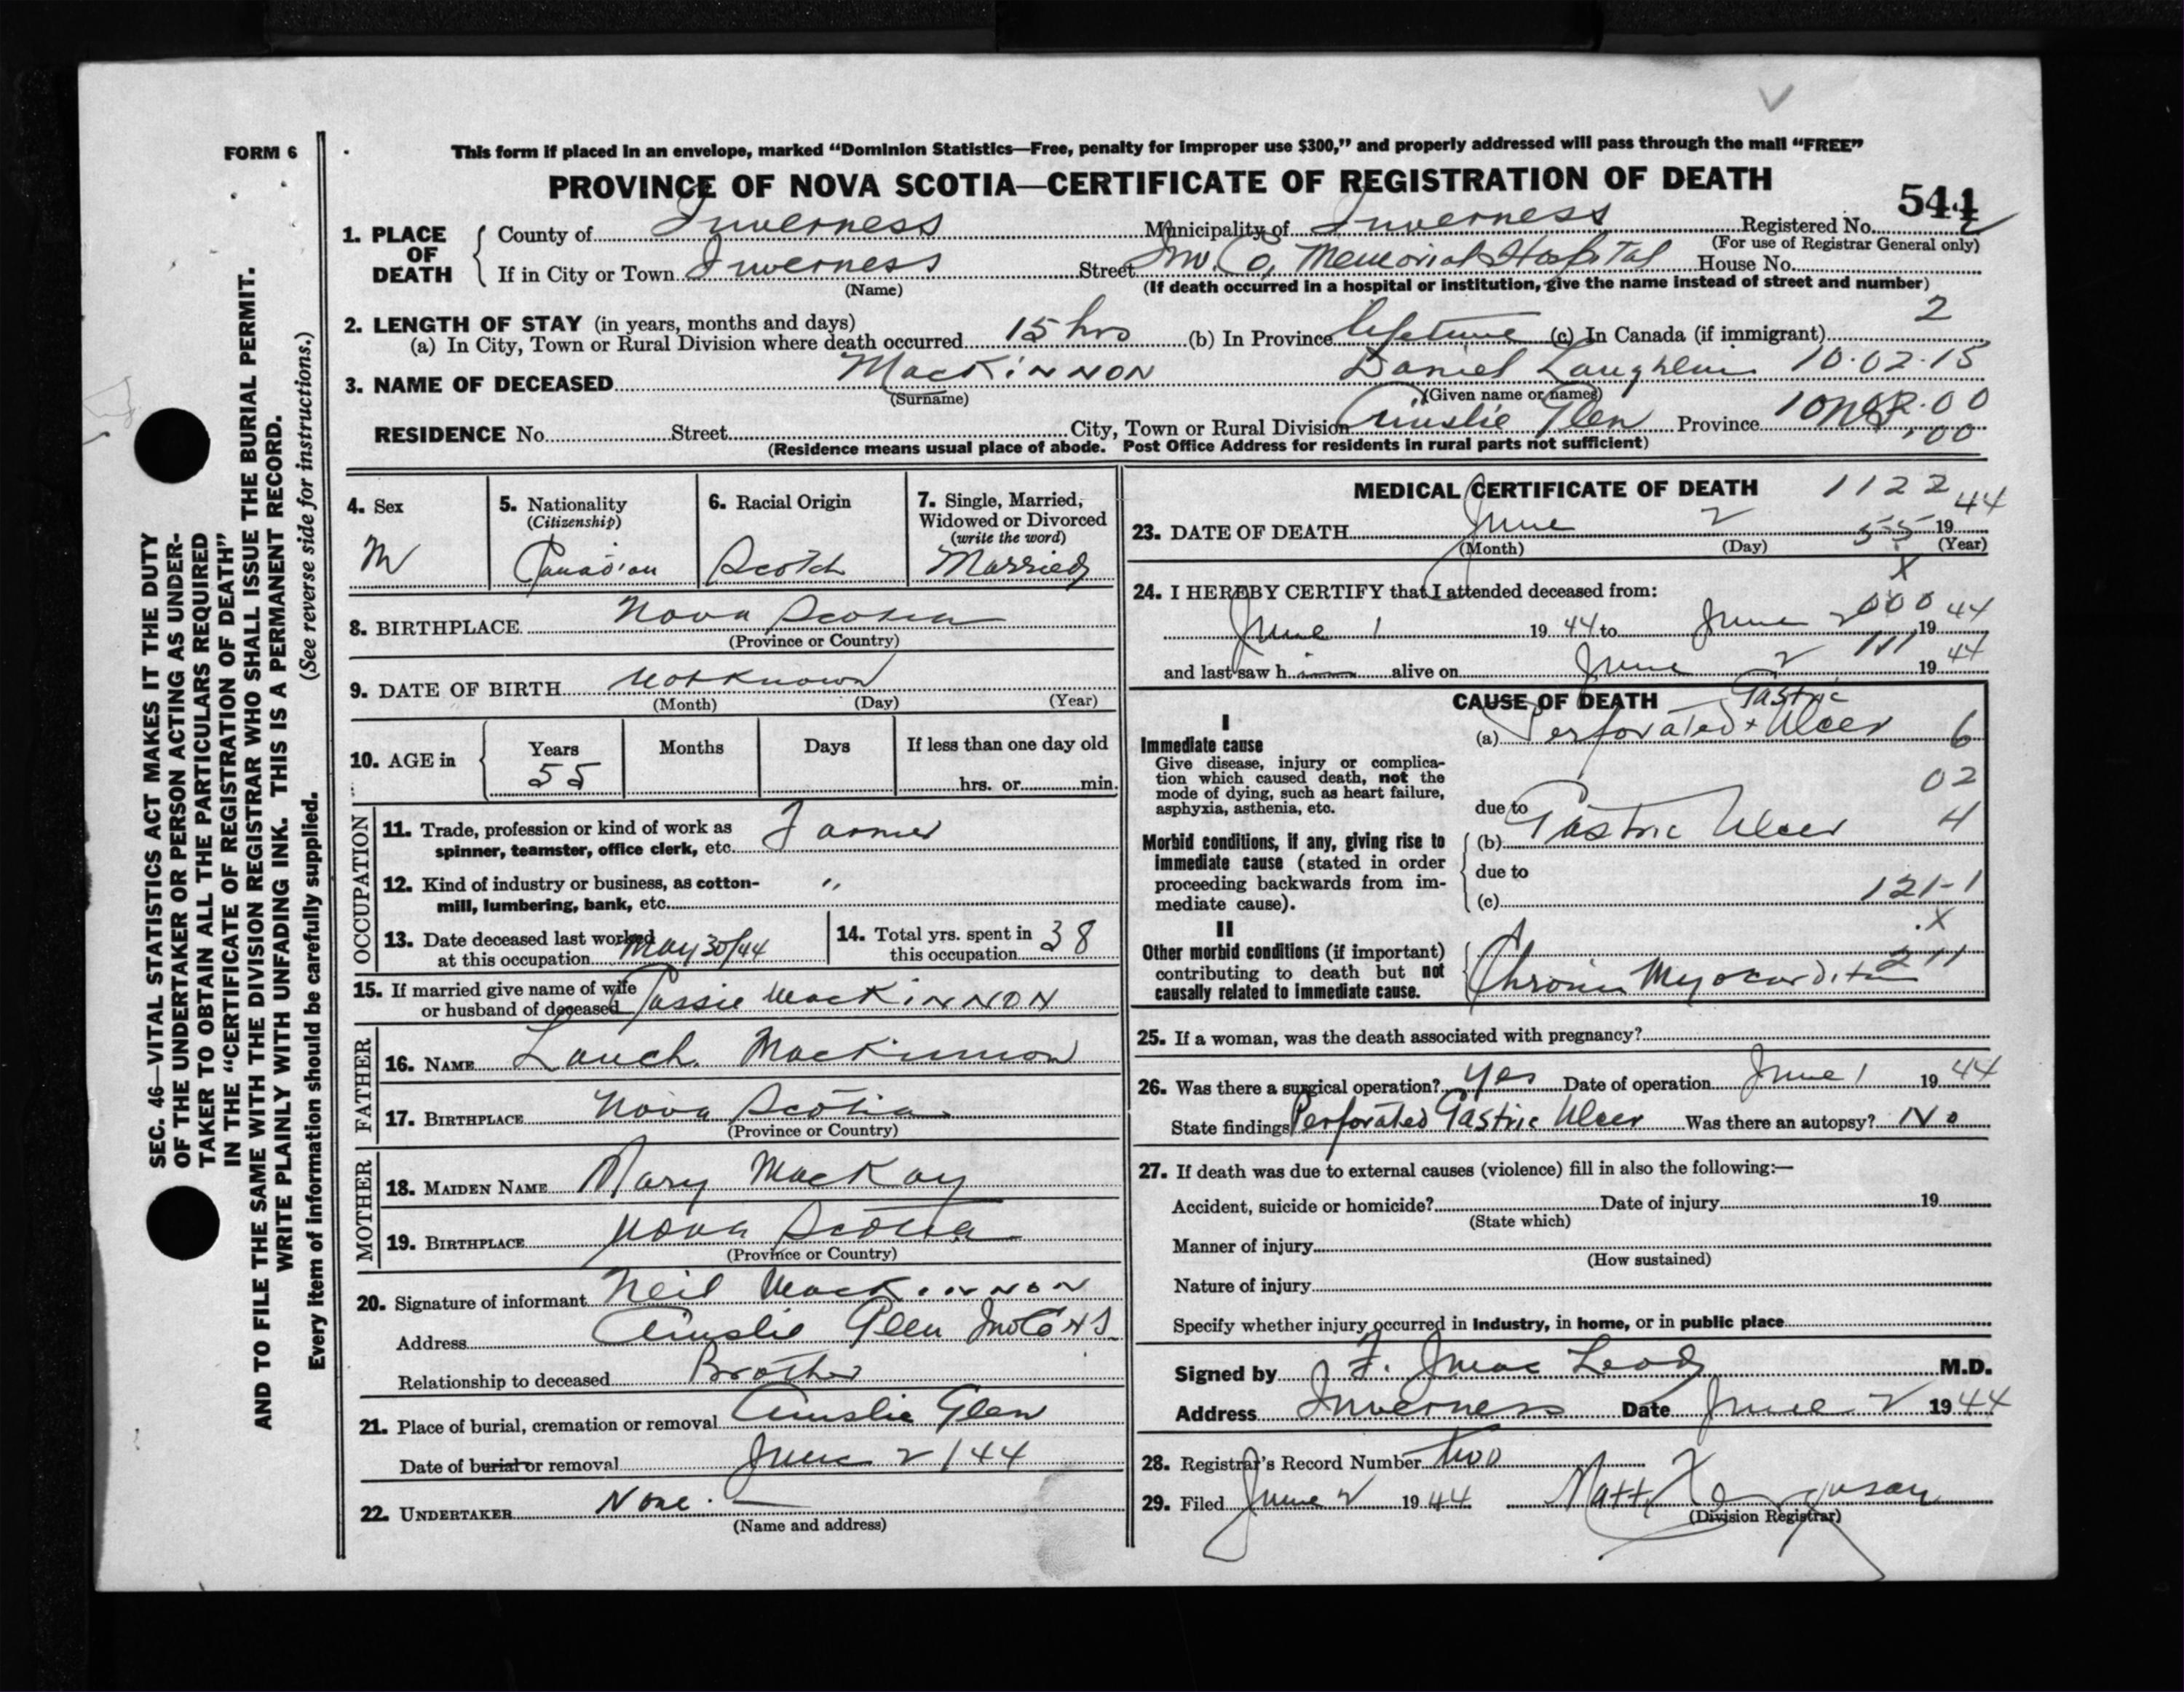 FORM 6
This form if placed in an envelope, marked “Dominion Statistics—Free, penalty for improper use $300,” and properly addressed will pass through the mail “FREE”
PROVINCE OF NOVA SCOTIA—CERTIFICATE OF REGISTRATION OF DEATH
544
1. PLACE OF DEATH
County of Inverness Municipality of Inverness Registered No.
(For use of Registrar General only)
If in City or Town Inverness Street Inv. Co. Memorial Hospital House No.
(Name) (If death occurred in a hospital or institution, give the name instead of street and number)
2. LENGTH OF STAY (in years, months and days) 2
(a) In City, Town or Rural Division where death occurred 15 hrs (b) In Province lifetime (c) In Canada (if immigrant)
3. NAME OF DECEASED MacKinnon Daniel Laughlin 10·02·15
(Surname) (Given name or names)
RESIDENCE No. Street City, Town or Rural Division Ainslie Glen Province NS
(Residence means usual place of abode. Post Office Address for residents in rural parts not sufficient)
4. Sex
M
5. Nationality
(Citizenship)
Canadian
6. Racial Origin
Scotch
7. Single, Married,
Widowed or Divorced
(write the word)
Married
8. BIRTHPLACE Nova Scotia
(Province or Country)
9. DATE OF BIRTH not known
(Month) (Day) (Year)
10. AGE in Years Months Days If less than one day old
55 hrs. or min.
OCCUPATION
11. Trade, profession or kind of work as
spinner, teamster, office clerk, etc. Farmer
12. Kind of industry or business, as cotton-
mill, lumbering, bank, etc. "
13. Date deceased last worked
at this occupation May 30/44
14. Total yrs. spent in
this occupation 38
15. If married give name of wife
or husband of deceased Cassie MacKinnon
FATHER
16. NAME Lauch. MacKinnon
17. BIRTHPLACE Nova Scotia
(Province or Country)
MOTHER
18. MAIDEN NAME Mary MacKay
19. BIRTHPLACE Nova Scotia
(Province or Country)
20. Signature of informant Neil MacKinnon
Address Ainslie Glen Inv Co NS
Relationship to deceased Brother
21. Place of burial, cremation or removal Ainslie Glen
Date of burial or removal June 2/44
22. UNDERTAKER None.
(Name and address)
MEDICAL CERTIFICATE OF DEATH 1122
23. DATE OF DEATH June 2 1944
55
(Month) (Day) (Year)
X
24. I HEREBY CERTIFY that I attended deceased from:
000
June 1 1944 to June 2 1944
111
and last saw him alive on June 2 1944
CAUSE OF DEATH
I
Immediate cause
Give disease, injury or complica-
tion which caused death, not the
mode of dying, such as heart failure,
asphyxia, asthenia, etc.
(a) Perforated Gastric Ulcer 6
02
due to
Morbid conditions, if any, giving rise to
immediate cause (stated in order
proceeding backwards from im-
mediate cause).
(b) Gastric Ulcer 4
due to
(c) 121-1
X
II
Other morbid conditions (if important)
contributing to death but not
causally related to immediate cause.
211
Chronic Myocarditis
25. If a woman, was the death associated with pregnancy?
26. Was there a surgical operation? Yes Date of operation June 1 1944
State findings Perforated Gastric Ulcer Was there an autopsy? No
27. If death was due to external causes (violence) fill in also the following:—
Accident, suicide or homicide? Date of injury 19
(State which)
Manner of injury
(How sustained)
Nature of injury
Specify whether injury occurred in industry, in home, or in public place
Signed by MacLeod M.D.
Address Inverness Date June 2 1944
28. Registrar's Record Number two
29. Filed June 2 1944 Matt Ferguson
(Division Registrar)
SEC. 46—VITAL STATISTICS ACT MAKES IT THE DUTY
OF THE UNDERTAKER OR PERSON ACTING AS UNDER-
TAKER TO OBTAIN ALL THE PARTICULARS REQUIRED
IN THE “CERTIFICATE OF REGISTRATION OF DEATH”
AND TO FILE THE SAME WITH THE DIVISION REGISTRAR WHO SHALL ISSUE THE BURIAL PERMIT.
WRITE PLAINLY WITH UNFADING INK. THIS IS A PERMANENT RECORD.
Every item of information should be carefully supplied. (See reverse side for instructions.)